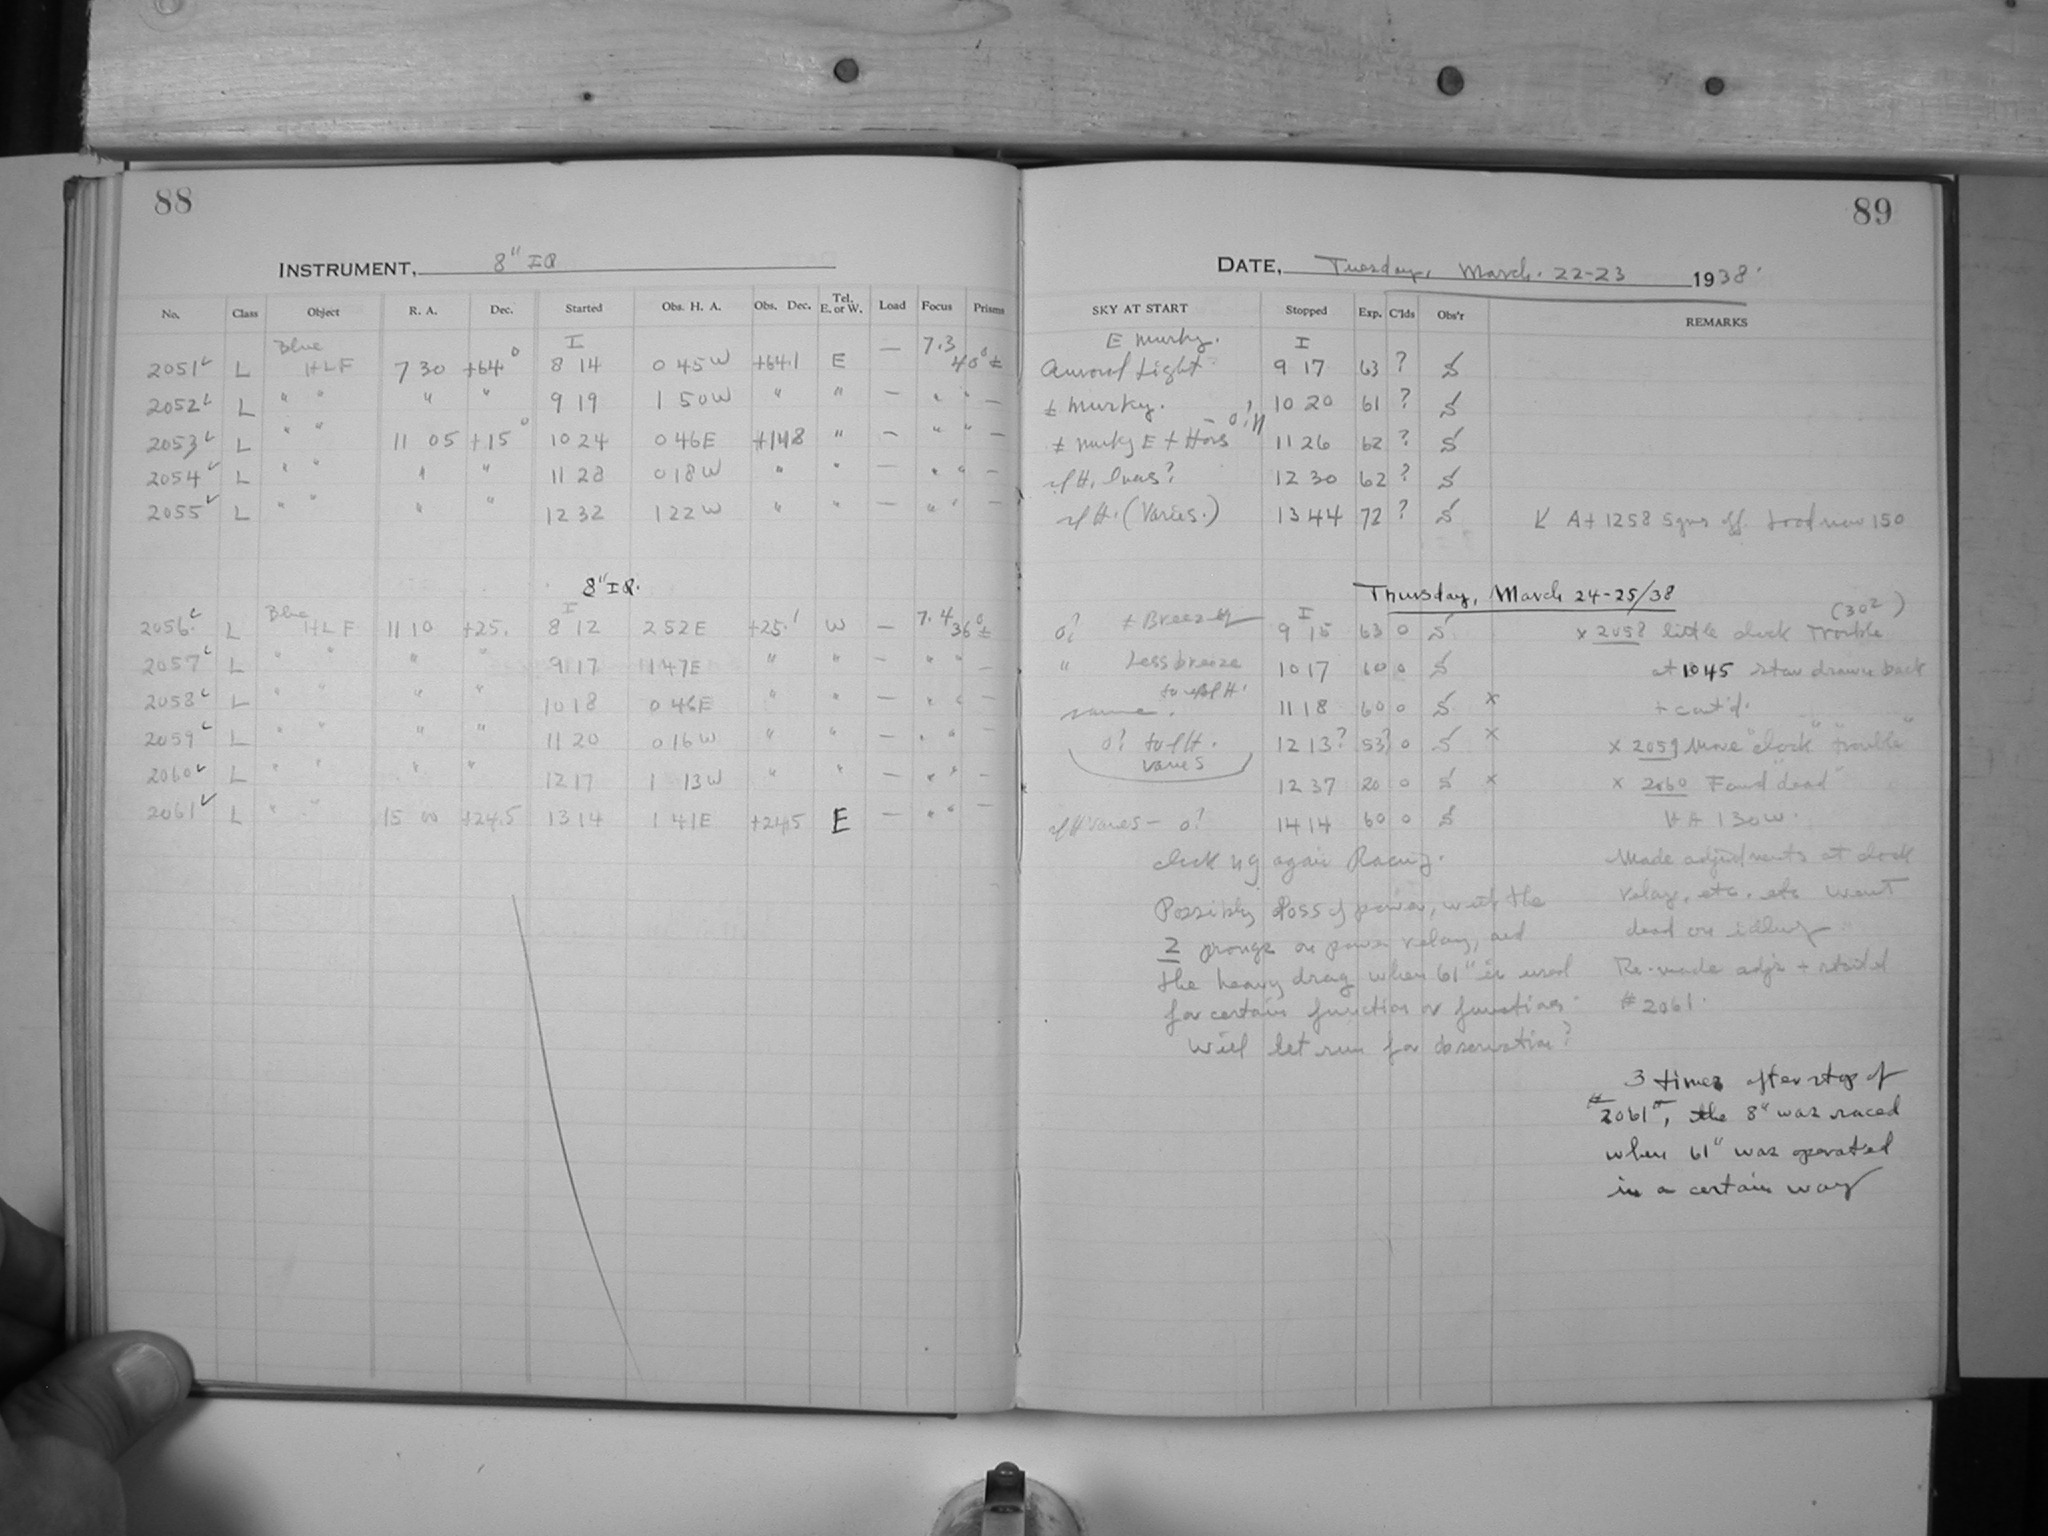 88
INSTRUMENT, 8" IR
No. Class Object R. A. Dec. Started Obs. H. A. Obs. Dec. Tel. E. or W. Load Focus Prisms
Blue I 7.3
2051 L HLF 7 30 +64° 8 14 0 45W +64.1 E — 40° ±
2052 L " " " " 9 19 1 50W " " — " " —
2053 L " " 11 05 +15° 10 24 0 46E +14.8 " — " " —
2054 L " " " " 11 28 0 18W " " — " " —
2055 L " " " " 12 32 1 22W " " — " " —
8" IR.
Blue I 7.4
2056 L HLF 11 10 +25. 8 12 2 52E +25.1 W — 36° ±
2057 L " " " " 9 17 1 47E " " — " " —
2058 L " " " " 10 18 0 46E " " — " " —
2059 L " " " " 11 20 0 16W " " — " " —
2060 L " " " " 12 17 1 13W " " — " " —
2061 L " " 15 00 +24.5 13 14 1 41E +24.5 E — " " —
89
DATE, Tuesday, March. 22-23 1938.
SKY AT START Stopped Exp. C'lds Obs'r REMARKS
E murky. I
Auroral Light 9 17 63 ? S
± murky. 10 20 61 ? S
± murky E + Hors 11 26 62 ? S
12 30 62 ? S
(Varies.) 13 44 72 ? S At 1258 5gms off. Load now 150
Thursday, March 24-25/38
± Breezy I (302)
0? 9 15 63 0 S x 2058 little clock trouble
" Less breeze 10 17 60 0 S at 1045 star drawn back
same. 11 18 60 0 S x + cont'd.
0? to 12 13? 53? 0 S x x 2059 More "clock" "trouble"
varies
12 37 20 0 S x x 2060 Found "dead"
varies — 0? 14 14 60 0 S HA 1 30W.
clock again Racing.
Possibly loss of power, with the
2 prongs on power relay, and
the heavy drag when 61" is used
for certain function or functions.
Will let run for observation?
Made adjustments at clock
relay, etc. etc went
dead on idling.
Re-made adjs + started
#2061.
3 times after stop of
#2061, the 8" was raced
when 61" was operated
in a certain way